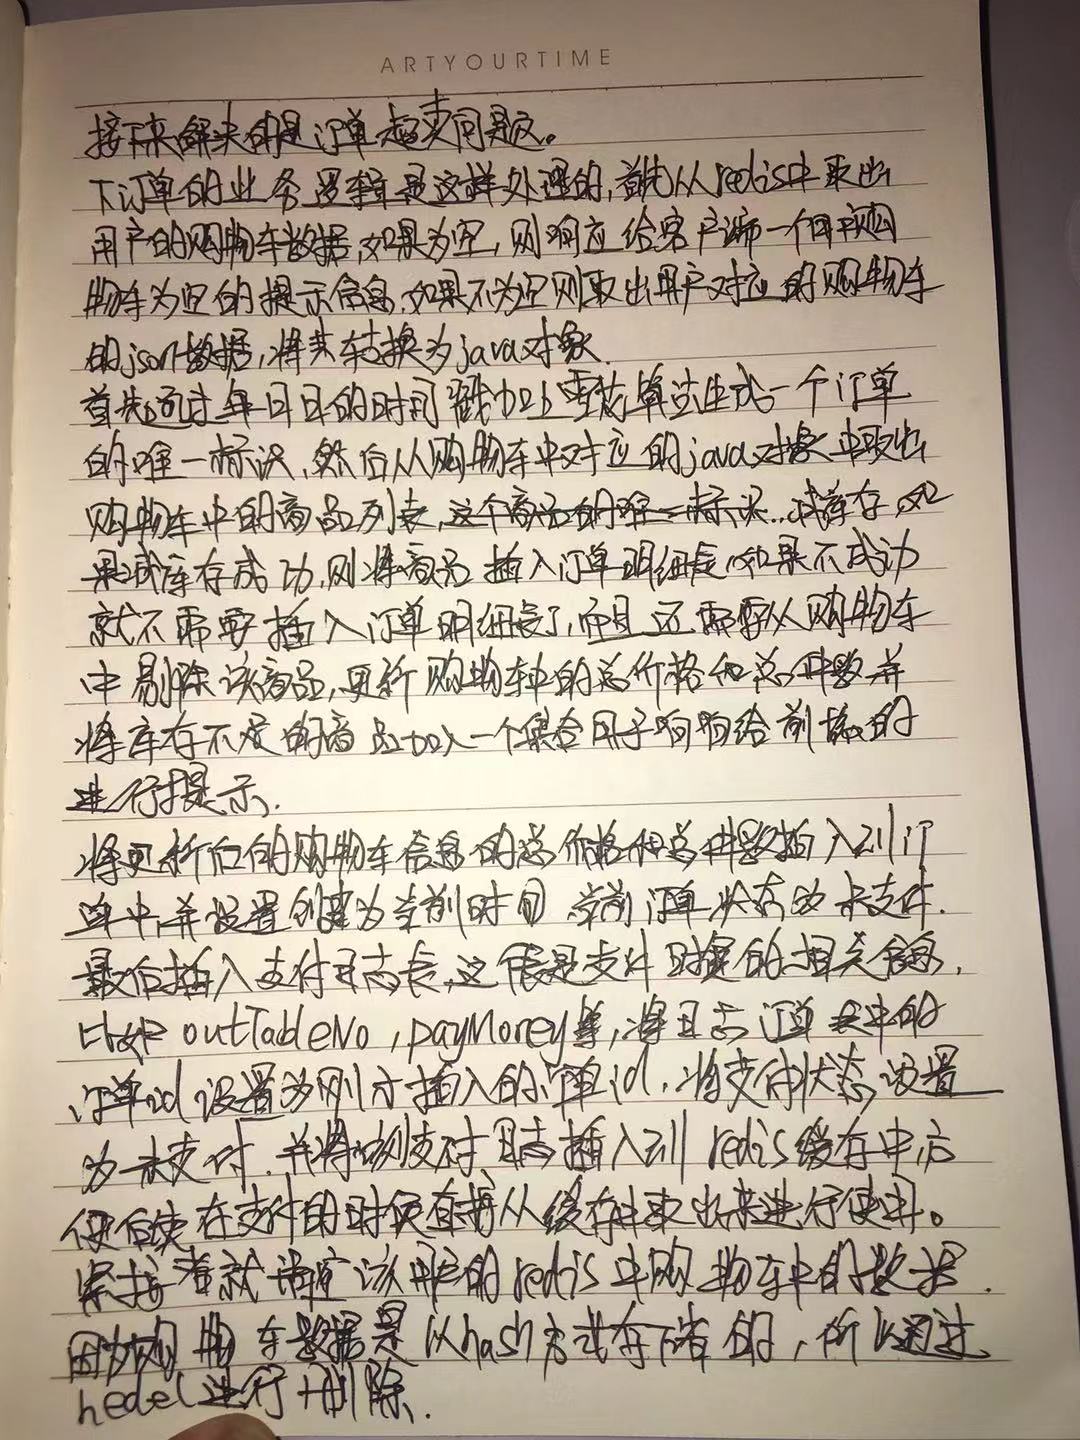 ARTYOURTIME
接下来解决的是订单超卖问题。
下订单的业务逻辑是这样处理的,首先从redis中取出
用户的购物车数据,如果为空,则响应给客户端一个购
物车为空的提示信息,如果不为空则取出用户对应的购物车
的json数据,将其转换为java对象.
首先通过每日日的时间戳加上雪花算法生成一个订单
的唯一标识,然后从购物车中对应的java对象中取出
购物车中的商品列表,这个商品的唯一标识...减库存,如
果减库存成功,则将商品插入订单明细表,如果不成功
就不需要插入订单明细表了,而且还需要从购物车
中剔除该商品,更新购物车中的总价格和总件数并
将库存不足的商品加入一个集合用于响响给前端的
进行提示.
将更新后的购物车信息的总价格和总件数插入到订
单中,并设置创建为当前时间 当前订单状态为未支付.
最后插入支付日志表,这个表是支付时候的相关信息,
比如 outTableNo,payMoney等,将日志订单表中的
订单id设置为刚才插入的订单id,将支付状态设置
为一未支付.并将该支付日志插入到redis缓存中方
便后续在支付的时候直接从缓存中取出来进行使用。
紧接着就清空该用户的redis中购物车中的数据.
因为购物车数据是以hash方式存储的,所以通过
hedel进行删除.